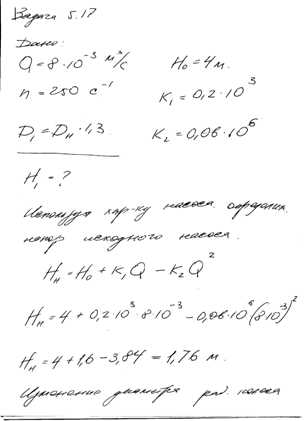 Задача 5.17
Дано:
Q = 8·10⁻³ м³/с H₀ = 4 м.
n = 250 с⁻¹ K₁ = 0,2·10³
D₁ = Dн·1,3 K₂ = 0,06·10⁶
H₁ - ?
Используя хар-ку насоса определим
напор исходного насоса.
Hн = H₀ + K₁Q - K₂Q²
Hн = 4 + 0,2·10³·8·10⁻³ - 0,06·10⁶(8·10³)²
Hн = 4 + 1,6 - 3,84 = 1,76 м.
Изменение диаметра раб. колеса